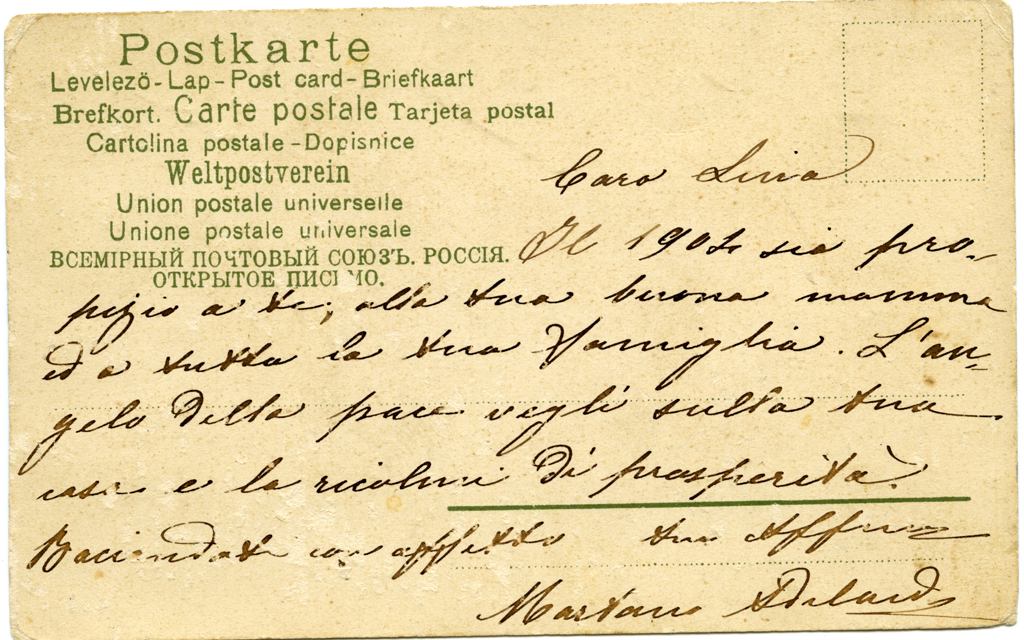 Postkarte
Levelező-Lap-Post card-Briefkaart
Brefkort. Carte postale Tarjeta postal
Cartolina postale-Dopisnice
Weltpostverein
Union postale universelle
Unione postale universale
ВСЕМІРНЫЙ ПОЧТОВЫЙ СОЮЗЪ. РОССІЯ.
ОТКРЫТОЕ ПИСЬМО.
Caro Livia
Il 1904 sia pro-
pizio a te, alla tua buona mamma
ed a tutta la tua famiglia. L'an-
gelo della pace vegli sulla tua
casa e la ricolmi di prosperità.
Baciandoti con affetto tuo